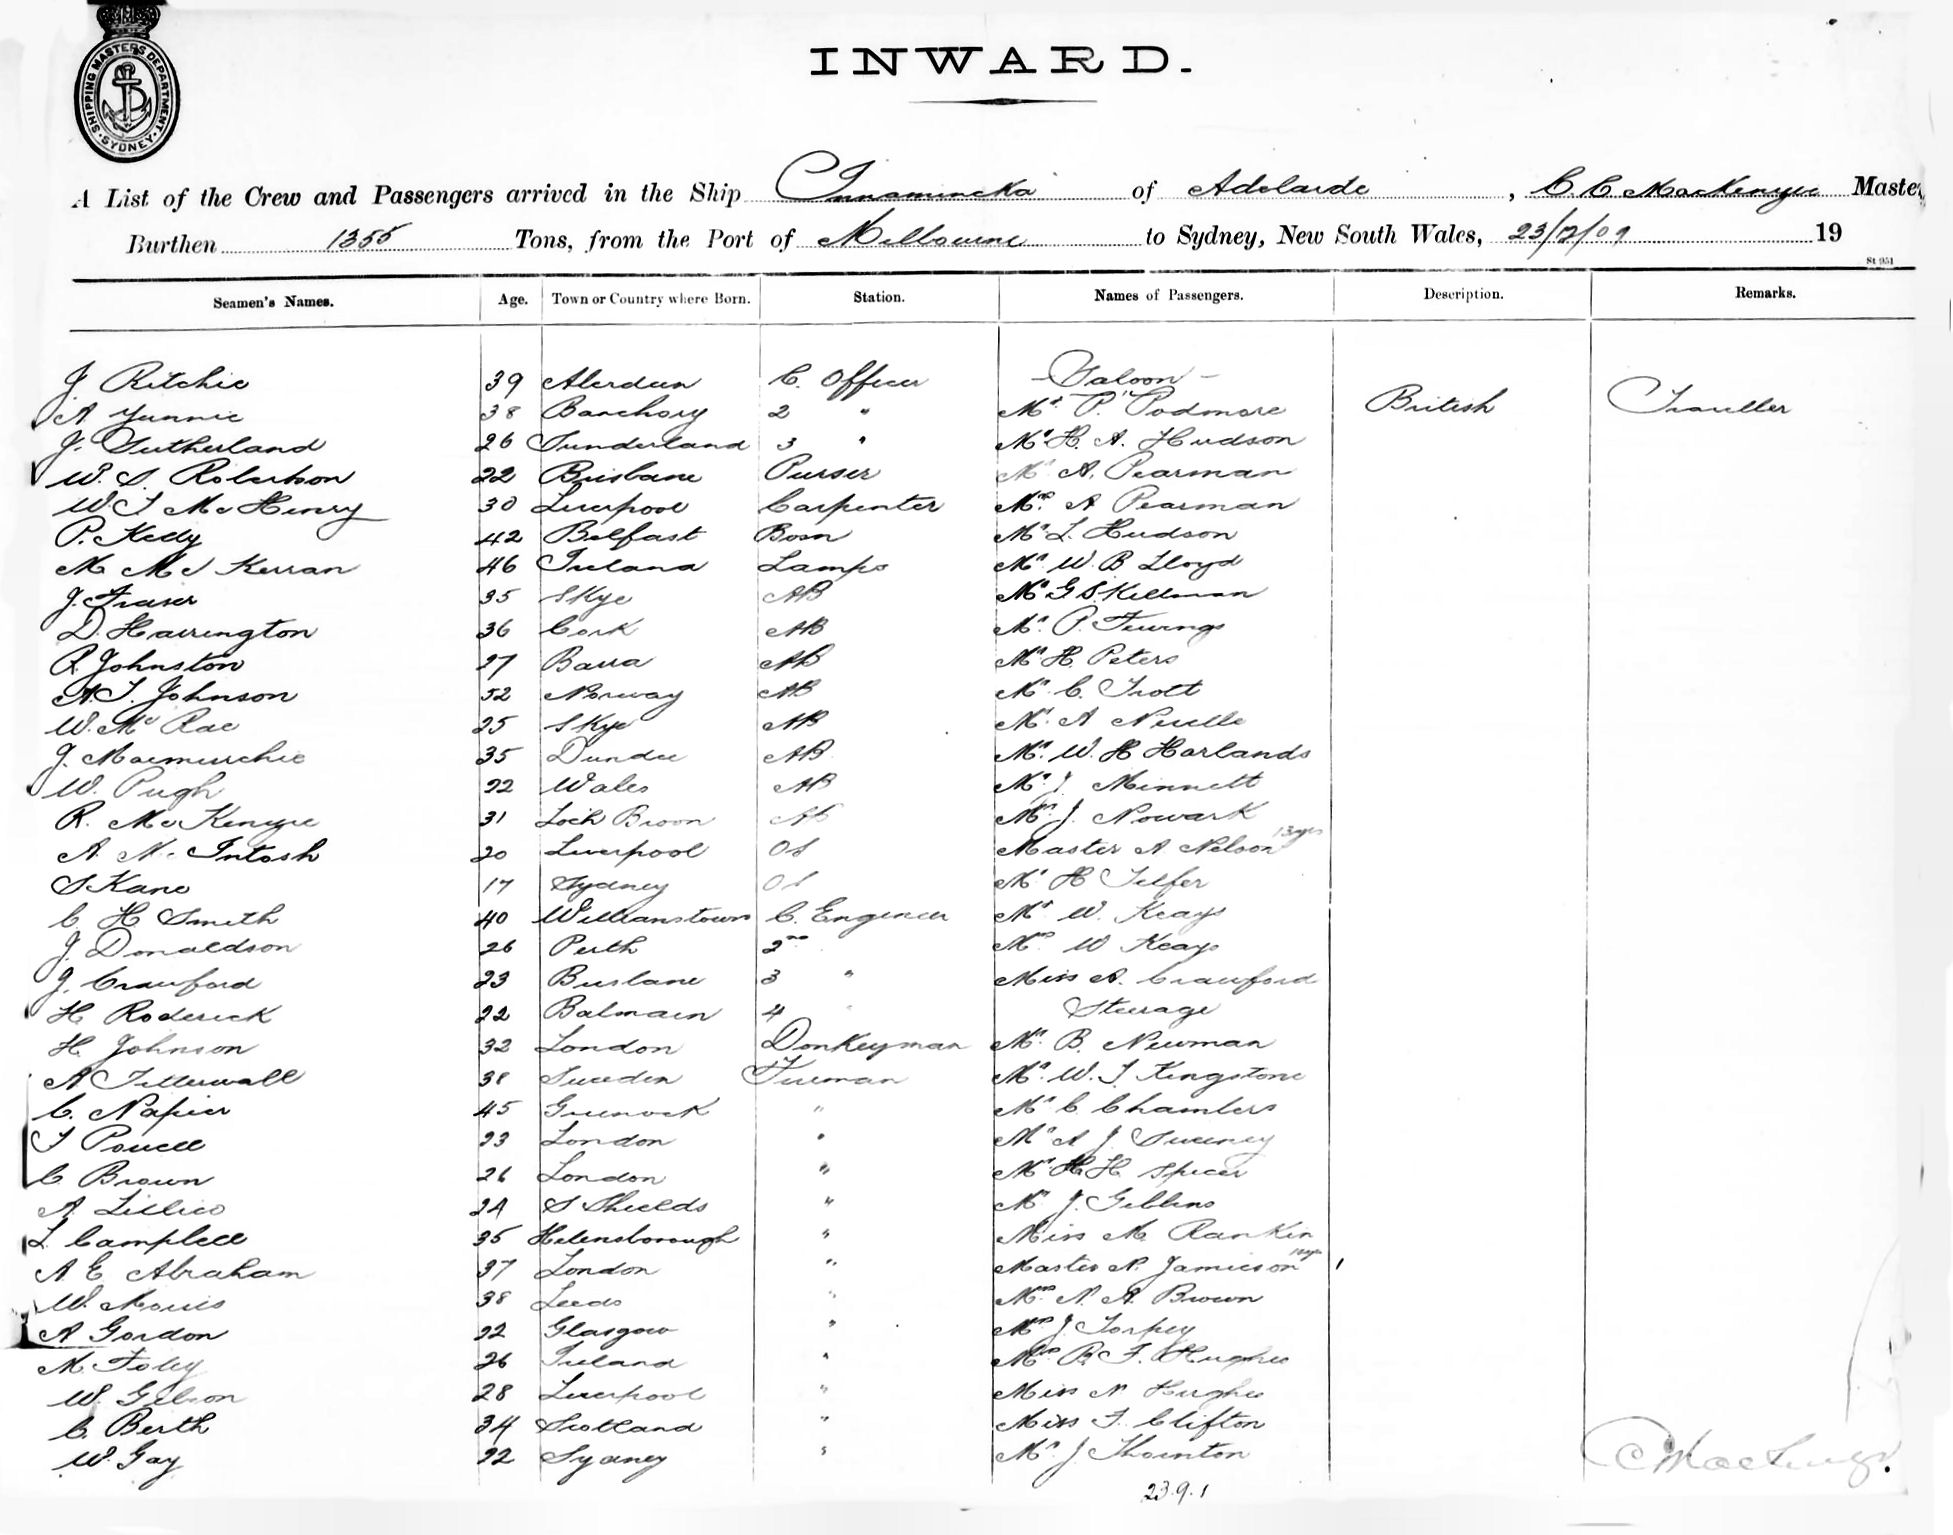 SHIPPING MASTERS DEPARTMENT. SYDNEY
INWARD.
A List of the Crew and Passengers arrived in the Ship Innamincka of Adelaide, C. C. MacKenzie Master
Burthen 1355 Tons, from the Port of Melbourne to Sydney, New South Wales, 23/2/09 19
St 951
Seamen's Names. Age. Town or Country where Born. Station. Names of Passengers. Description. Remarks.
J. Ritchie 39 Aberdeen C. Officer - Saloon -
A Yunnie 38 Banchory 2 " Mr P. Podmore British Traveller
J. Sutherland 26 Sunderland 3 " Mr H. A. Hudson
W. S. Robertson 22 Brisbane Purser Mr A. Pearman
W T McHenry 30 Liverpool Carpenter Mrs A Pearman
P. Kedy 42 Belfast Bosn Mr L. Hudson
M Mc Kerran 46 Ireland Lamps Mr W B Lloyd
J. Fraser 35 Skye AB Mr G S. Kellman
D. Harrington 36 Cork AB Mr P. Tewings
R. Johnston 27 Barra AB Mr H. Peters
A. T. Johnson 52 Norway AB Mr C. Trott
W. Mc Rae 25 Skye AB Mr A Neville
J. Macmurchie 35 Dundee AB Mr W. H Harlands
W. Pugh 22 Wales AB Mr J. Minnett
R. Mc Kenzie 31 Loch Broon AB Mr J. Nowark
A. Mc Intosh 20 Liverpool OS Master A Nelson 13 yrs
S Kane 17 Sydney OS Mr H Telfer
C H Smith 40 Williamstown C. Engineer Mr W. Keays
J. Donaldson 26 Perth 2nd Mrs W Keays
J. Crawford 23 Brisbane 3 " Miss A. Crawford
H. Roderick 22 Balmain 4 " Steerage
H. Johnson 32 London Donkeyman Mr B. Newman
A Tetterwall 38 Sweden Fireman Mr W. T. Kingstone
C. Napier 45 Greenock " Mr C Chambers
T Powell 23 London " Mr A J. Sweeney
C Brown 26 London " Mr H. H. Spicer
A. Lillico 24 S Shields " Mr J. Gibbins
L. Campbell 35 Helensborough " Miss M. Rankin
A E Abraham 37 London " Master N. Jamieson
W. Morris 38 Leeds " Mrs N. A. Brown
A Gordon 22 Glasgow " Mrs J Torpey
M. Foley 26 Ireland " Mrs R. F. Hughes
W. Gibson 28 Liverpool " Miss N Hughes
C. Berth 34 Scotland " Miss F. Clifton
W. Gay 22 Sydney " Mr J Thornton
23.9.1